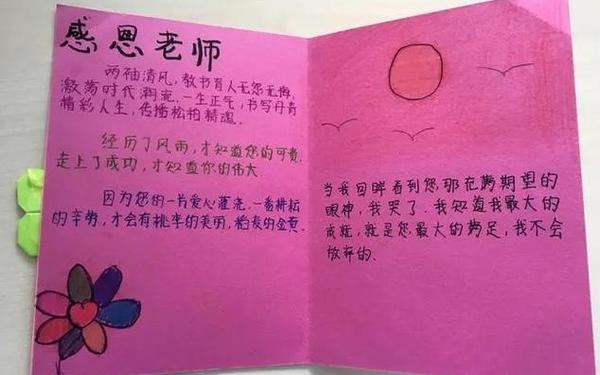 感恩老师
两袖清风,教书育人无怨无悔,
激荡时代潮流.一生正气,书写丹青
精彩人生,传播松柏精魂.
经历了风雨,才知道您的可贵,
走上了成功,才知道你的伟大
因为您的一片爱心灌浇,一番耕耘
的辛劳,才会有桃李的美丽,稻麦的金黄.
当我回眸看到您那充满期望的
眼神,我哭了.我知道我最大的
成就,就是您最大的满足,我不会
放弃的.